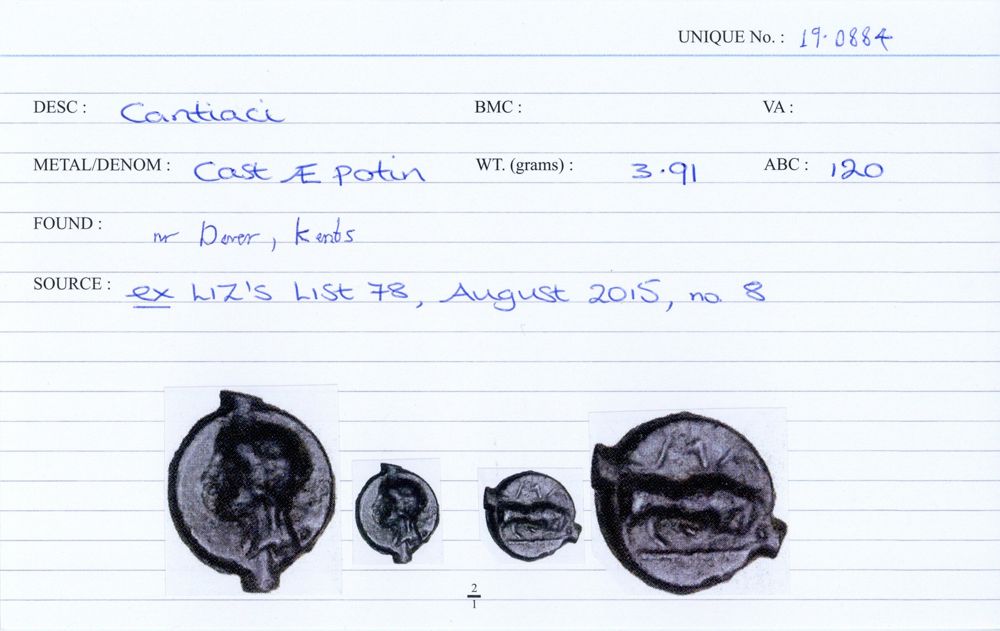 UNIQUE No. : 19.0884
DESC : Cantiaci BMC : VA :
METAL/DENOM : Cast Æ potin WT. (grams) : 3.91 ABC : 120
FOUND : nr Dover, Kents
SOURCE : ex LIZ'S LIST 78, August 2015, no. 8
2
1